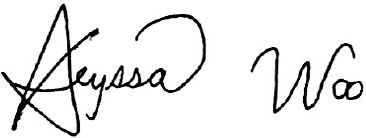 Alyssa Woo